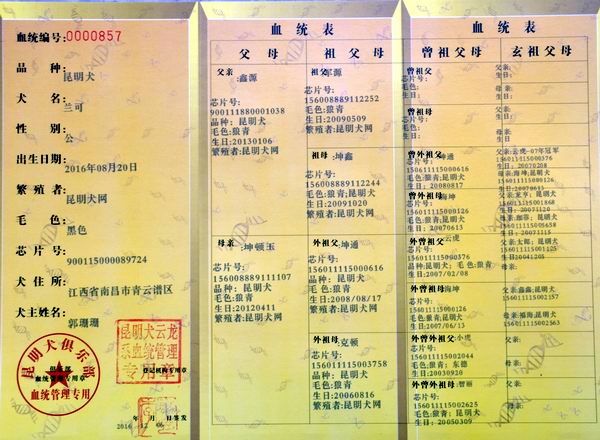 血统编号:0000857
品种:
昆明犬
犬名:
兰可
性别:
公
出生日期:
2016年08月20日
繁殖者:
昆明犬网
毛色:
黑色
芯片号:
900115000089724
犬住所:
江西省南昌市青云谱区
犬主姓名:
郭珊珊
昆明犬俱乐部
血统管理专用章
血统管理专用
昆明犬云龙
系血统管理
专用章
登记机构专用章
年 月 日签发
2016 12 06
血统表
父母
祖父母
父亲:鑫源
芯片号:
900111880001038
品种: 昆明犬
毛色:狼青
生日:20130106
繁殖者:昆明犬网
母亲:坤顿玉
芯片号:
156008889111107
品种: 昆明犬
毛色:狼青
生日:20120411
繁殖者:昆明犬网
祖父:军源
芯片号:
156008889112252
毛色:狼青
生日:20090509
繁殖者:昆明犬网
祖母:坤鑫
芯片号:
156008889112244
毛色:狼青
生日:20091020
繁殖者:昆明犬网
外祖父:坤通
芯片号:
156011115000616
品种: 昆明犬
毛色:狼青
生日:2008/08/17
繁殖者:昆明犬网
外祖母:克顿
芯片号:
156011115003758
品种: 昆明犬
毛色:狼青
生日:20060816
繁殖者:昆明犬网
血统表
曾祖父母
玄祖父母
曾祖父:
芯片号:
毛色:
生日:
曾祖母:
芯片号:
毛色:
生日:
曾外祖父:坤通
芯片号:
156011115000616
毛色:狼青:昆明犬
生日: 20080817
曾外祖母:海坤
芯片号:
156011115000126
毛色:狼青:昆明犬
生日: 20070613
外曾祖父:云虎
芯片号:
156011115000376
品种:昆明犬; 毛色: 狼青
生日:2007/02/08
外曾祖母:海坤
芯片号:
156011115000126
品种:昆明犬; 毛色:狼青
生日:2007/06/13
外曾外祖父:小虎
芯片号:
156011115002044
毛色:狼青; 东德
生日: 20030920
外曾外祖母:曾丽
芯片号:
156011115002625
毛色:狼青;昆明犬
生日: 20050309
父亲:
生日:
母亲:
生日:
父亲:
母亲:
父亲:云虎-07年冠军
156011115000376
生日: 20070208
母亲:海坤;昆明犬
156011115000126
生日:20070613
昆明犬
生日: 20071120
昆明犬
156011115000658
父亲:太郎; 昆明犬
生日:20041205
母亲:
父亲:鑫鑫;昆明犬
156011115002157
母亲:福海;昆明犬
156011115002563
父亲:
母亲:
父亲:
母亲: